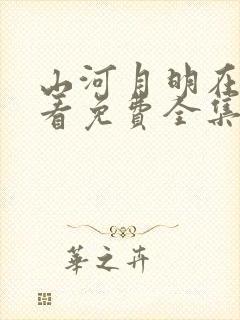 山河月明在
看免费全集
華之卉